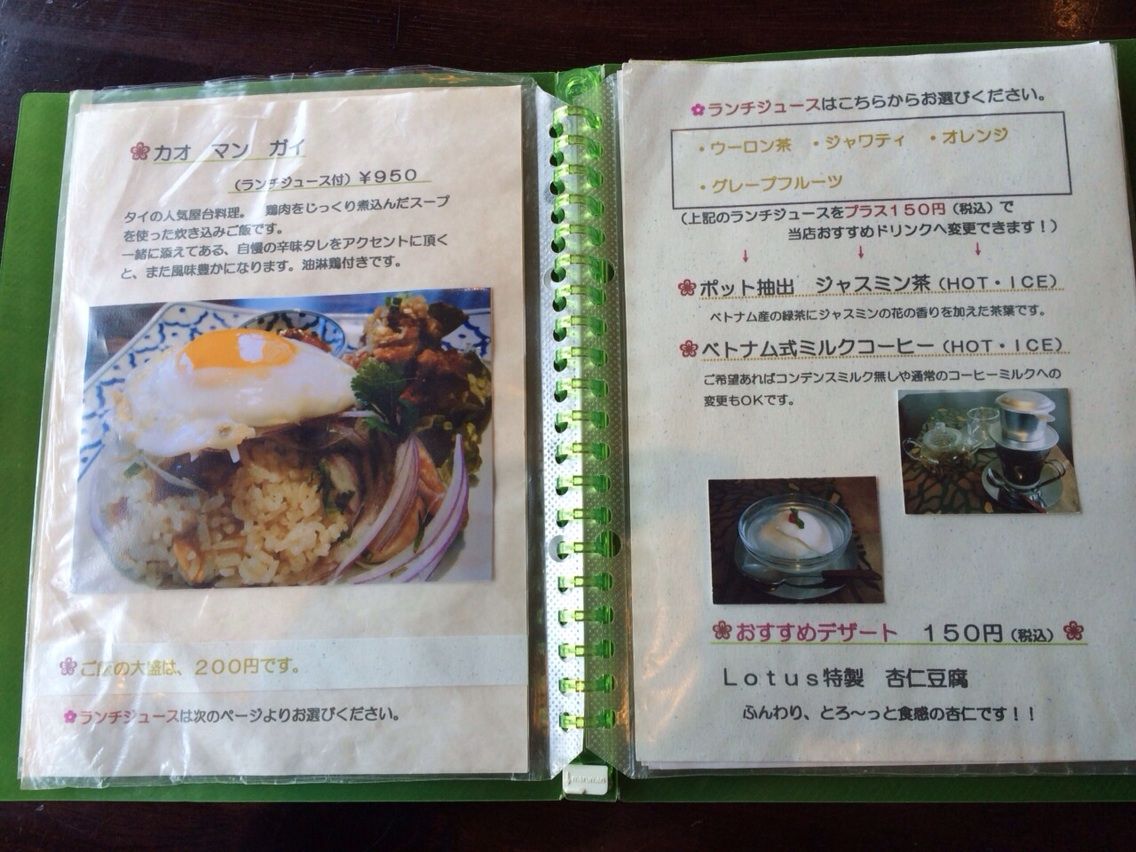 カオ マン ガイ
（ランチジュース付）￥９５０
タイの人気屋台料理。 鶏肉をじっくり煮込んだスープ
を使った炊き込みご飯です。
一緒に添えてある、自慢の辛味タレをアクセントに頂く
と、また風味豊かになります。油淋鶏付きです。
ご飯の大盛は、２００円です。
ランチジュースは次のページよりお選びください。
ランチジュースはこちらからお選びください。
・ウーロン茶 ・ジャワティ ・オレンジ
・グレープフルーツ
（上記のランチジュースをプラス１５０円（税込）で
当店おすすめドリンクへ変更できます！）
↓ ↓ ↓
ポット抽出 ジャスミン茶（HOT・ICE）
ベトナム産の緑茶にジャスミンの花の香りを加えた茶葉です。
ベトナム式ミルクコーヒー（HOT・ICE）
ご希望あればコンデンスミルク無しや通常のコーヒーミルクへの
変更もOKです。
おすすめデザート １５０円（税込）
Ｌｏｔｕｓ特製 杏仁豆腐
ふんわり、とろ～っと食感の杏仁です！！